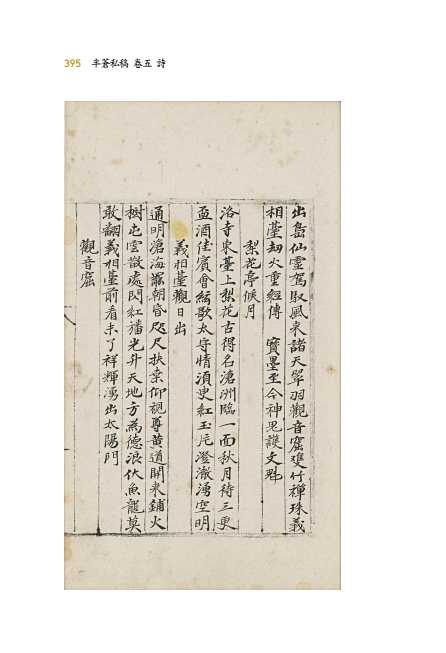 395 半蒼私稿 卷五 詩
出島仙靈駕馭風來諸天翠羽觀音窟雙竹禪珠義
相臺劫火重經傳 寶墨至今神鬼護文點
梨花亭候月
洛寺東臺上梨花古得名滄洲臨一面秋月待三更
盃酒佳賓會絃歌太守情須臾紅玉瓦澄澈湧空明
義相臺觀日出
通明滄海羃朝昏咫尺扶桒仰視尊黃道開來鋪火
樹屯雲散處閃紅旛光升天地方為德浪伏魚龍莫
敢翻義相臺前看未了祥輝湧出太陽門
觀音窟